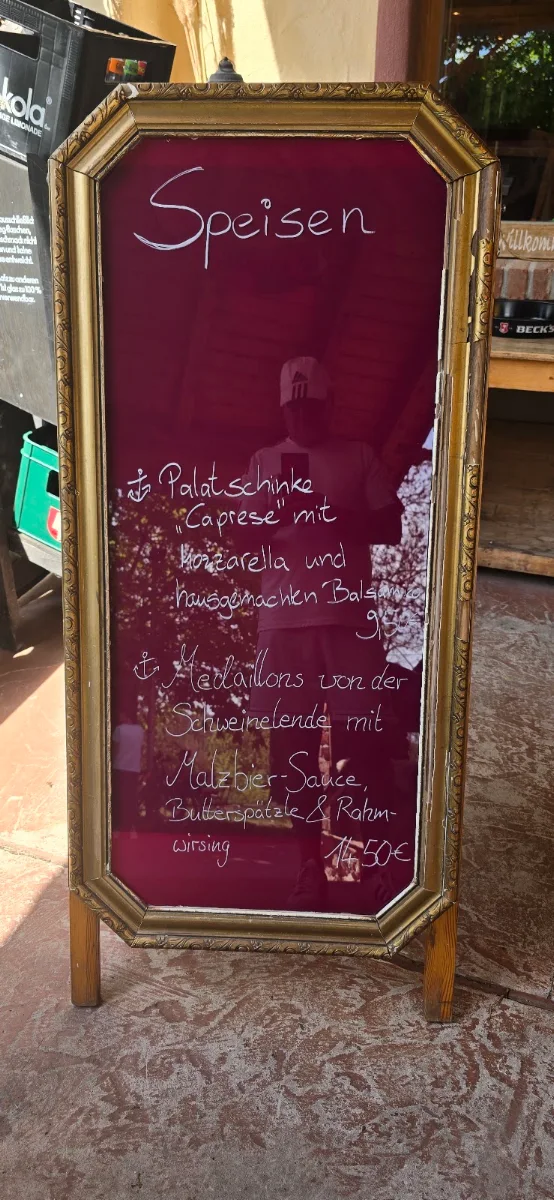 kola
Speisen
Willkomm
BECK'S
Palatschinke
„Caprese" mit
Mozzarella und
hausgemachten Balsamico
Medaillons von der
Schweinelende mit
Malzbier-Sauce,
Butterspätzle & Rahm-
wirsing 14,50€